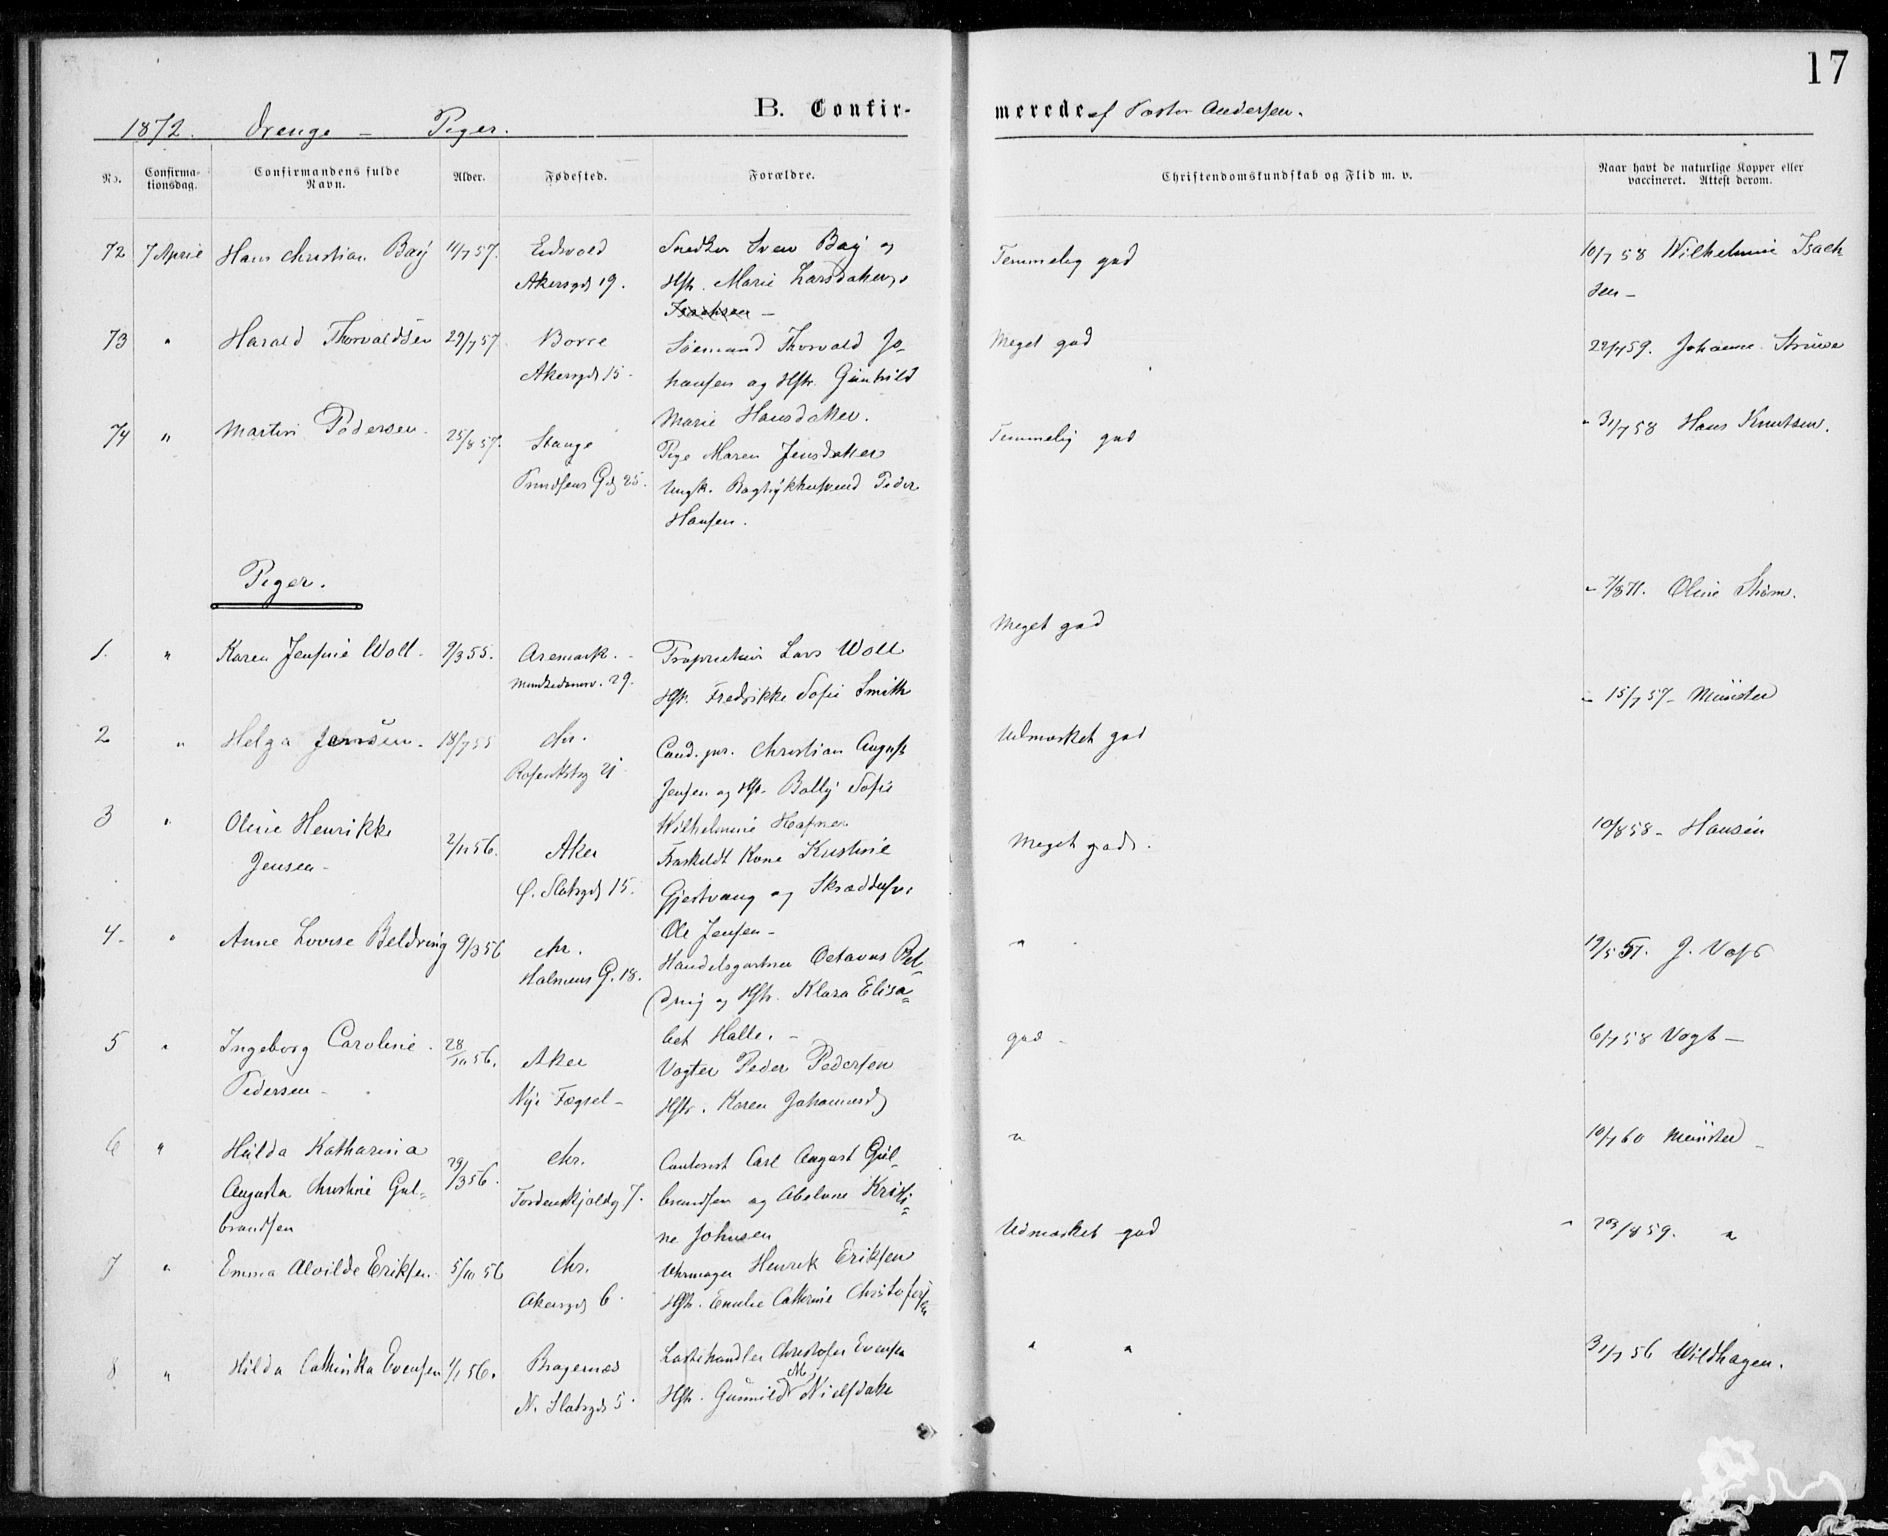 17
B. Confir-
merede af Pastor Andersen.
1872. Drenge – Piger.
No.
Confirma-
tionsdag.
Confirmandens fulde
Navn.
Alder.
Fødested.
Forældre.
Christendomskundskab og Flid m. v.
Naar havt de naturlige Kopper eller
vaccineret. Attest derom.
72 7 April Hans Christian Bay 11/7 57. Eidsvold Snedker Sven Bay og Temmelig god 10/7 58 Wilhelmine Isach
Akersgd 19. Hstr. Marie Larsdatter sen –
Isachsen –
73 " Harald Thorvaldsen 29/7 57 Borre Sømand Thorvald Jo- Meget god 22/7 59. Johanne Struse
Akersgd 15 – hansen og Hstr. Gunhild
Marie Hansdatter.
74 " Martin Pedersen. 25/8 57. Stange Pige Maren Jensdatter Temmelig god 31/7 58 Hans Knutsen.
G 25. Ungk. Peder
Hansen.
Piger.
1. " Karen Jensine Woll. 9/3 55. Aremark. Proprietær Lars Woll Meget god 7/8 71. Oline Strøm.
29. Hstr. Fredrikke Sofie Smith
2 " Helga Jensen. 18/7 55 Chr. Cand. jur. Christian August Udmærket god 15/7 57 – Münster
21 Jensen og Hstr. Bolly Sofie
Wilhelmine Hafner
3 " Oline Henrikke 2/11 56. Aker Fraskildt Kone Kristine Meget god. 10/8 58 – Hansen
Jensen – Ø. Slotsgd 15. Gjestvang og
Ole Jensen –
4. " Anne Lovise Beldring 9/3 56 Chr. Handelsgartner Octavus Bel- " 19/5 57. J. Vogt
Holmens G. 18. dring og Hstr. Klara Elisa-
bet Halle. –
5 " Ingeborg Caroline 28/10 56. Aker Vogter Peder Pedersen god – 6/7 58 Vogt –
Pedersen – Nye Fægsel – Hstr. Karen Johannesd
6 " Hilda Katharina 29/3 56. Chr. Contorist Carl August Gul- " 10/7 60 Münster –
Augusta Christine Gul- Tordenskjoldg 7. brandsen og Abelone Kristi-
brandsen ne Johnsen
7 " Emma Alvilde Eriksen. 5/10 56 Chr. Uhrmager Henrik Eriksen Udmærket god 23/8 59. "
Akersgd 6. Hstr. Emilie Cathrine Christofersen
8 " Hilda Cathinka Evensen 1/1 56. Bragernæs Lasthandler Christofer Evensen " " 31/7 56 Wildhagen.
N. Slotsgd 5. Hstr. Gunnild M. Nielsdatter